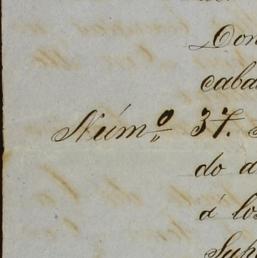 Don
caba
Númº 37.
do d
á los
Sup